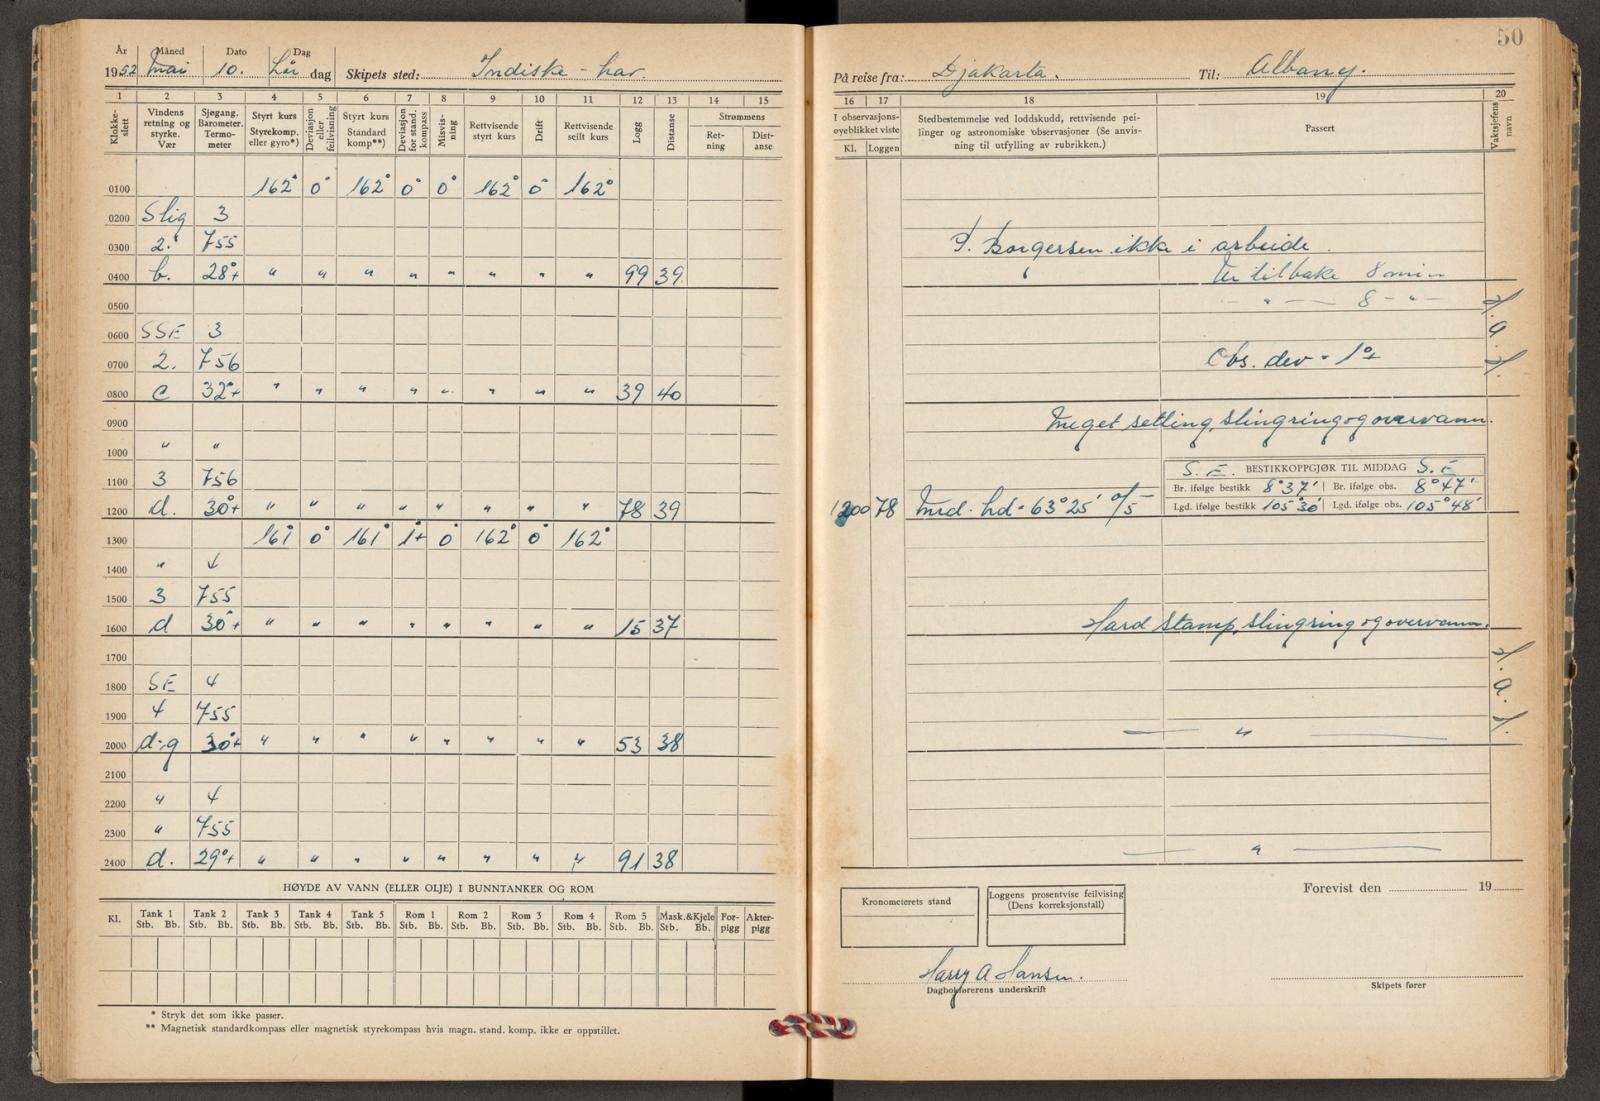 50
År Måned Dato Dag
1952 Mai 10. Lør dag Skipets sted: Indiske - hav.
På reise fra: Djakarta. Til: Albany.
1 2 3 4 5 6 7 8 9 10 11 12 13 14 15
Klokkeslett
Vindens retning og styrke. Vær
Sjøgang. Barometer. Termometer
Styrt kurs Styrekomp. eller gyro*)
Deviasjon eller feilvisning
Styrt kurs Standard komp**)
Deviasjon for stand. kompass
Misvisning
Rettvisende styrt kurs
Drift
Rettvisende seilt kurs
Logg
Distanse
Strømmens
Retning
Distanse
0100 162° 0° 162° 0° 0° 162° 0° 162°
0200 Slig 3
0300 2. 755
0400 b. 28°+ " " " " " " " " 99 39
0500
0600 SSE 3
0700 2. 756
0800 c 32°+ " " " " " " " " 39 40
0900
1000 " "
1100 3 756
1200 d. 30°+ " " " " " " " " 78 39
1300 161° 0° 161° 1°+ 0° 162° 0° 162°
1400 " 4
1500 3 755
1600 d 30°+ " " " " " " " " 15 37
1700
1800 SE 4
1900 4 755
2000 d-q 30°+ " " " " " " " " 53 38
2100
2200 " 4
2300 " 755
2400 d. 29°+ " " " " " " " " 91 38
HØYDE AV VANN (ELLER OLJE) I BUNNTANKER OG ROM
Kl. Tank 1 Tank 2 Tank 3 Tank 4 Tank 5 Rom 1 Rom 2 Rom 3 Rom 4 Rom 5 Mask.&Kjele For- Akter-
Stb. Bb. Stb. Bb. Stb. Bb. Stb. Bb. Stb. Bb. Stb. Bb. Stb. Bb. Stb. Bb. Stb. Bb. Stb. Bb. Stb. Bb. pigg pigg
* Stryk det som ikke passer.
** Magnetisk standardkompass eller magnetisk styrekompass hvis magn. stand. komp. ikke er oppstillet.
16 17 18 19 20
I observasjons-
øyeblikket viste
Kl. Loggen
Stedbestemmelse ved loddskudd, rettvisende pei-
linger og astronomiske observasjoner (Se anvis-
ning til utfylling av rubrikken.)
Passert
Vaktsjefens navn
Borgersen ikke i arbeide.
Ur tilbake 8 min
— " — 8 - " -
H. a. H.
Obs. dev = 1°+
Meget setting, slingring og overvann.
S. E. BESTIKKOPPGJØR TIL MIDDAG S. E
Br. ifølge bestikk 8°37' Br. ifølge obs. 8°47'
1200 78 Mid. hd = 63°25' Lgd. ifølge bestikk 105°30' Lgd. ifølge obs. 105°48'
Hard Stamp, slingring og overvann.
H. a. H.
— " —
— " —
Kronometerets stand
Loggens prosentvise feilvisning
(Dens korreksjonstall)
Forevist den 19
Harry A Hansen.
Dagbokførerens underskrift
Skipets fører